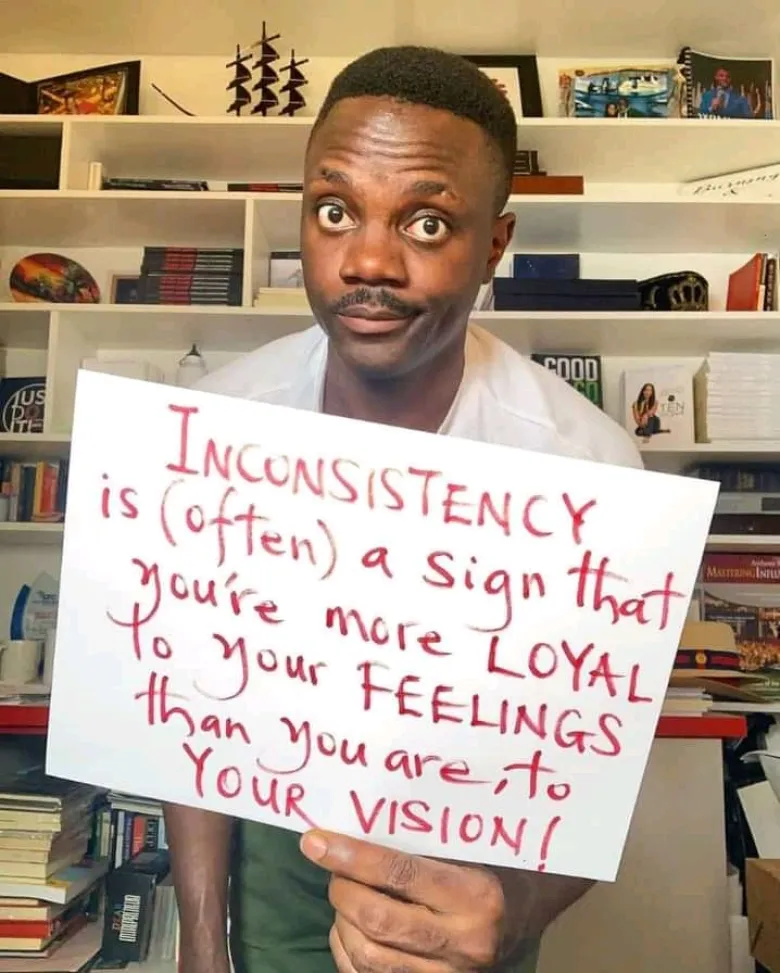 INCONSISTENCY
is (often) a sign that
you're more LOYAL
to your FEELINGS
than you are, to
YOUR VISION!
GOOD
TEN
JUS
DO
IT
MASTERING
DEAR